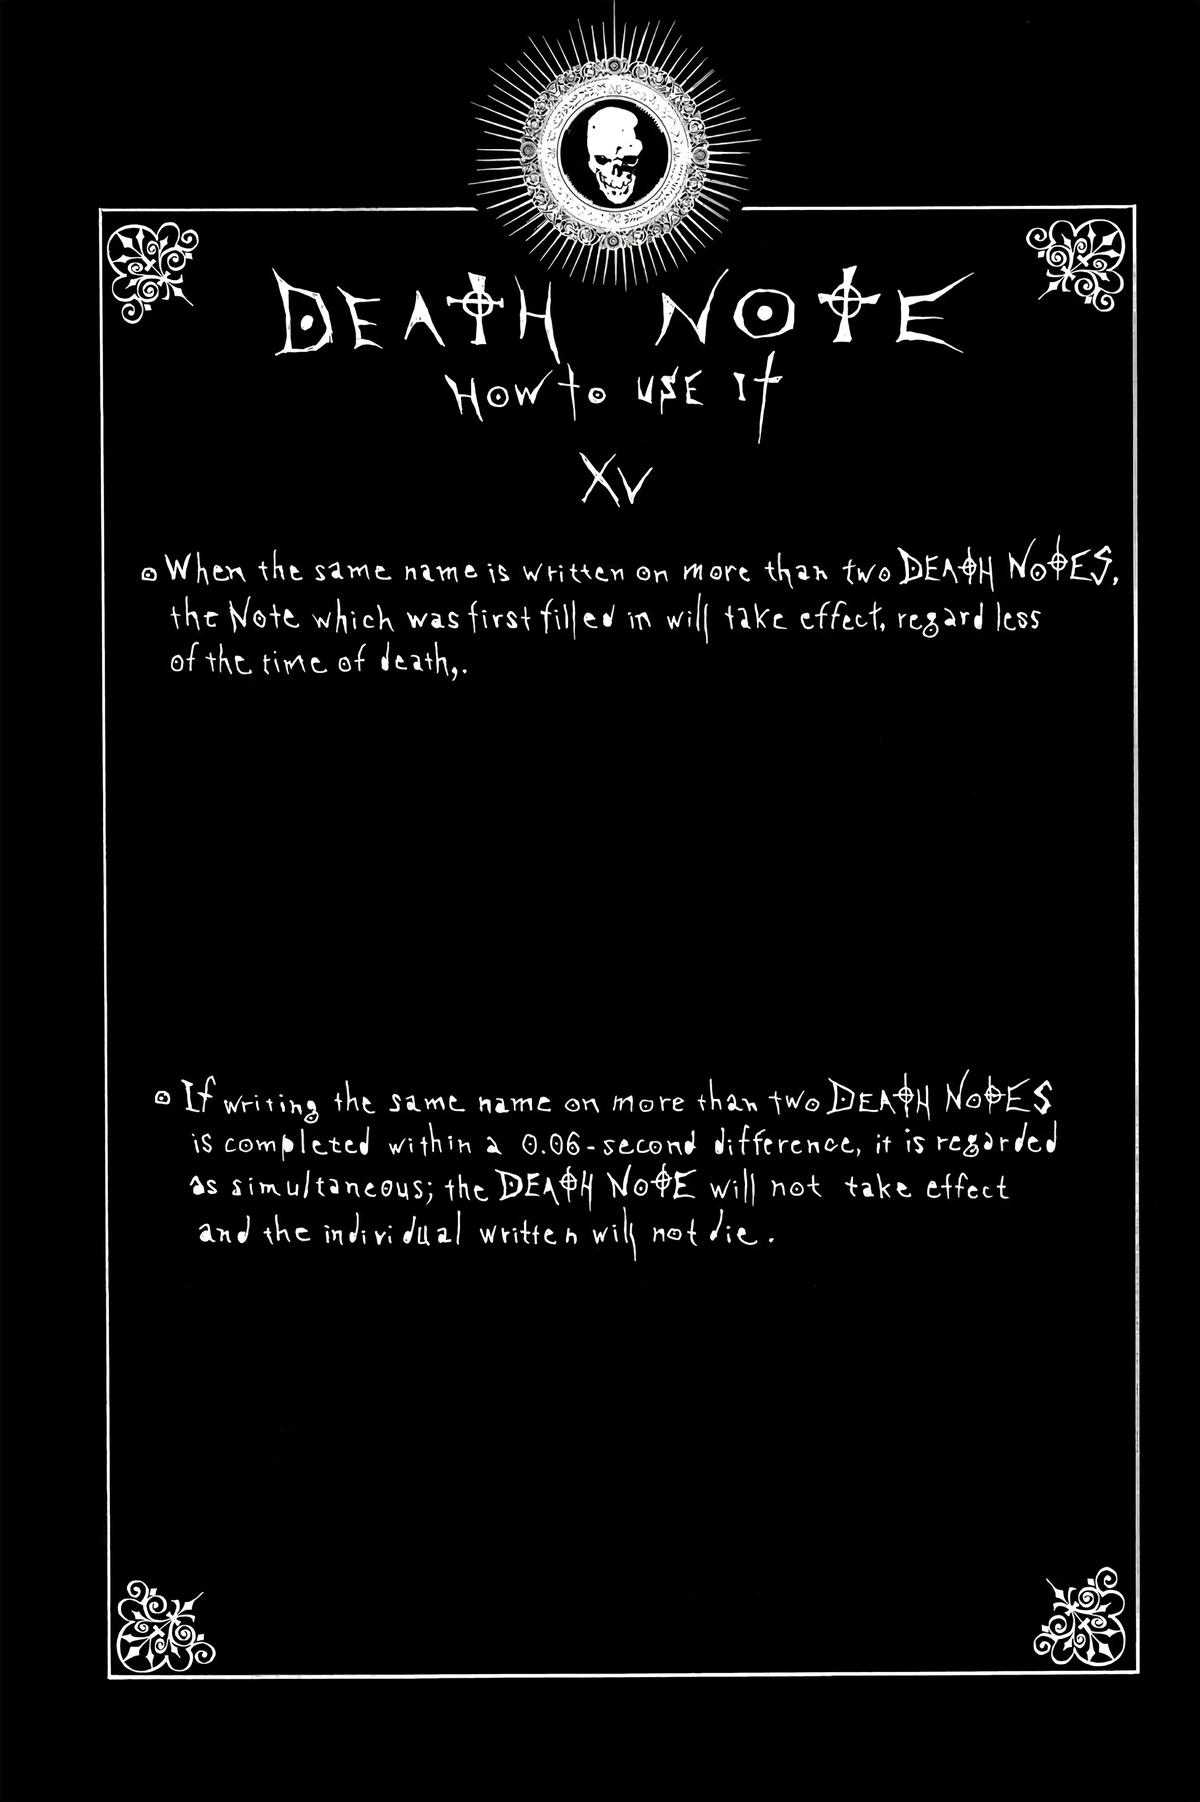 DEATH NOTE
How to use it
XV
When the same name is written on more than two DEATH NOTES,
the Note which was first filled in will take effect, regardless
of the time of death,.
If writing the same name on more than two DEATH NOTES
is completed within a 0.06-second difference, it is regarded
as simultaneous; the DEATH NOTE will not take effect
and the individual written will not die.